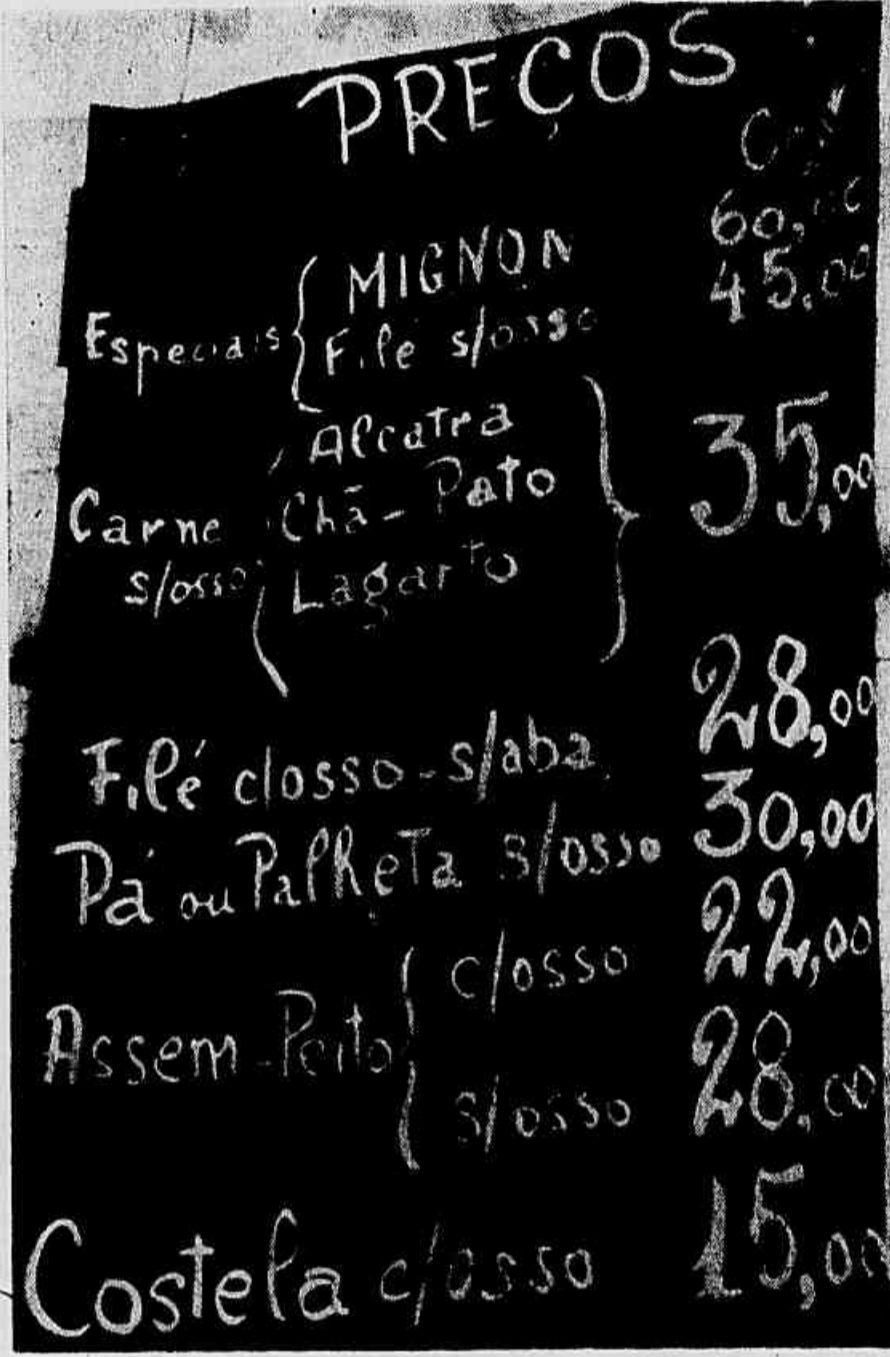 PREÇOS
Especiais
MIGNON 60,00
Filé s/osso 45,00
Carne s/osso
Alcatra
Chã-Pato
Lagarto
35,00
Filé c/osso-s/aba 28,00
Pá ou Palheta s/osso 30,00
Assem-Peito
c/osso 22,00
s/osso 28,00
Costela c/osso 15,00